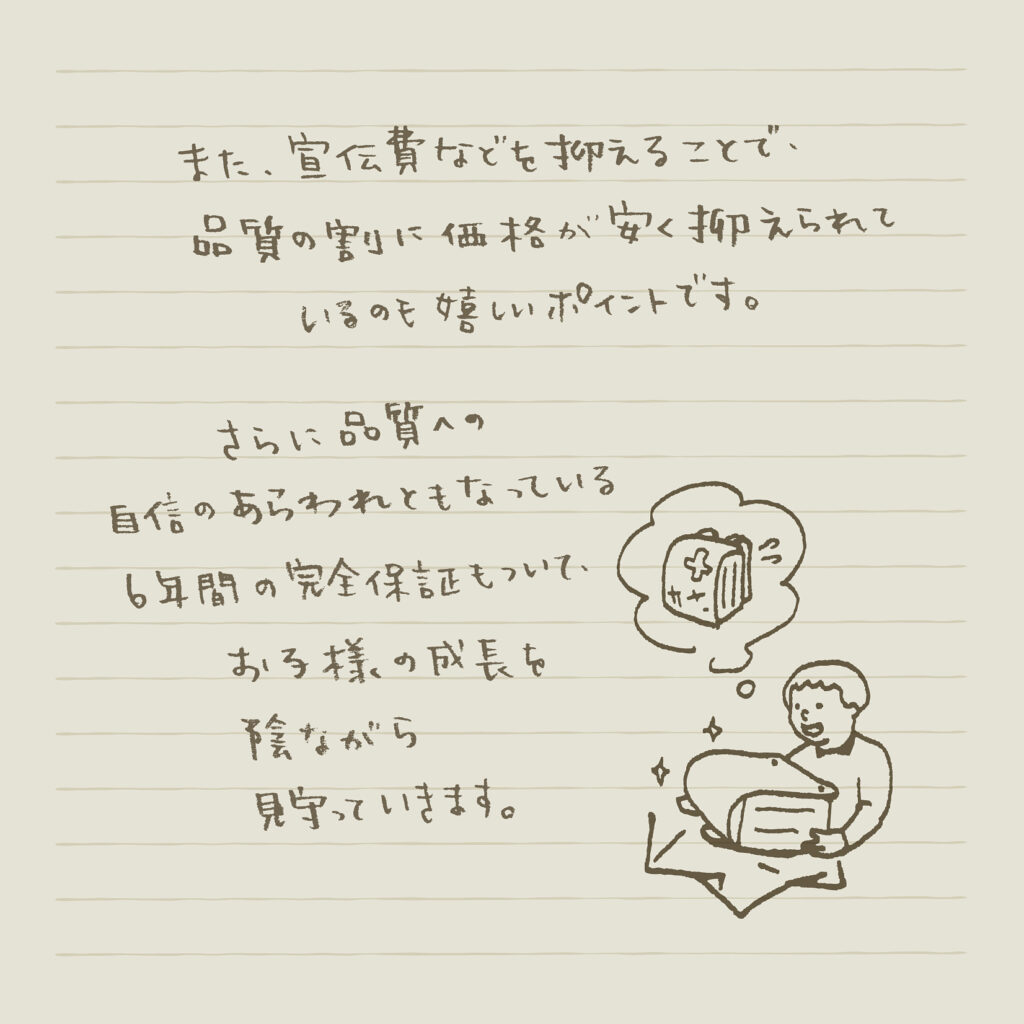 また、宣伝費などを抑えることで、
品質の割に価格が安く抑えられて
いるのも嬉しいポイントです。
さらに品質への
自信のあらわれともなっている
6年間の完全保証もついて、
お子様の成長を
陰ながら
見守っていきます。